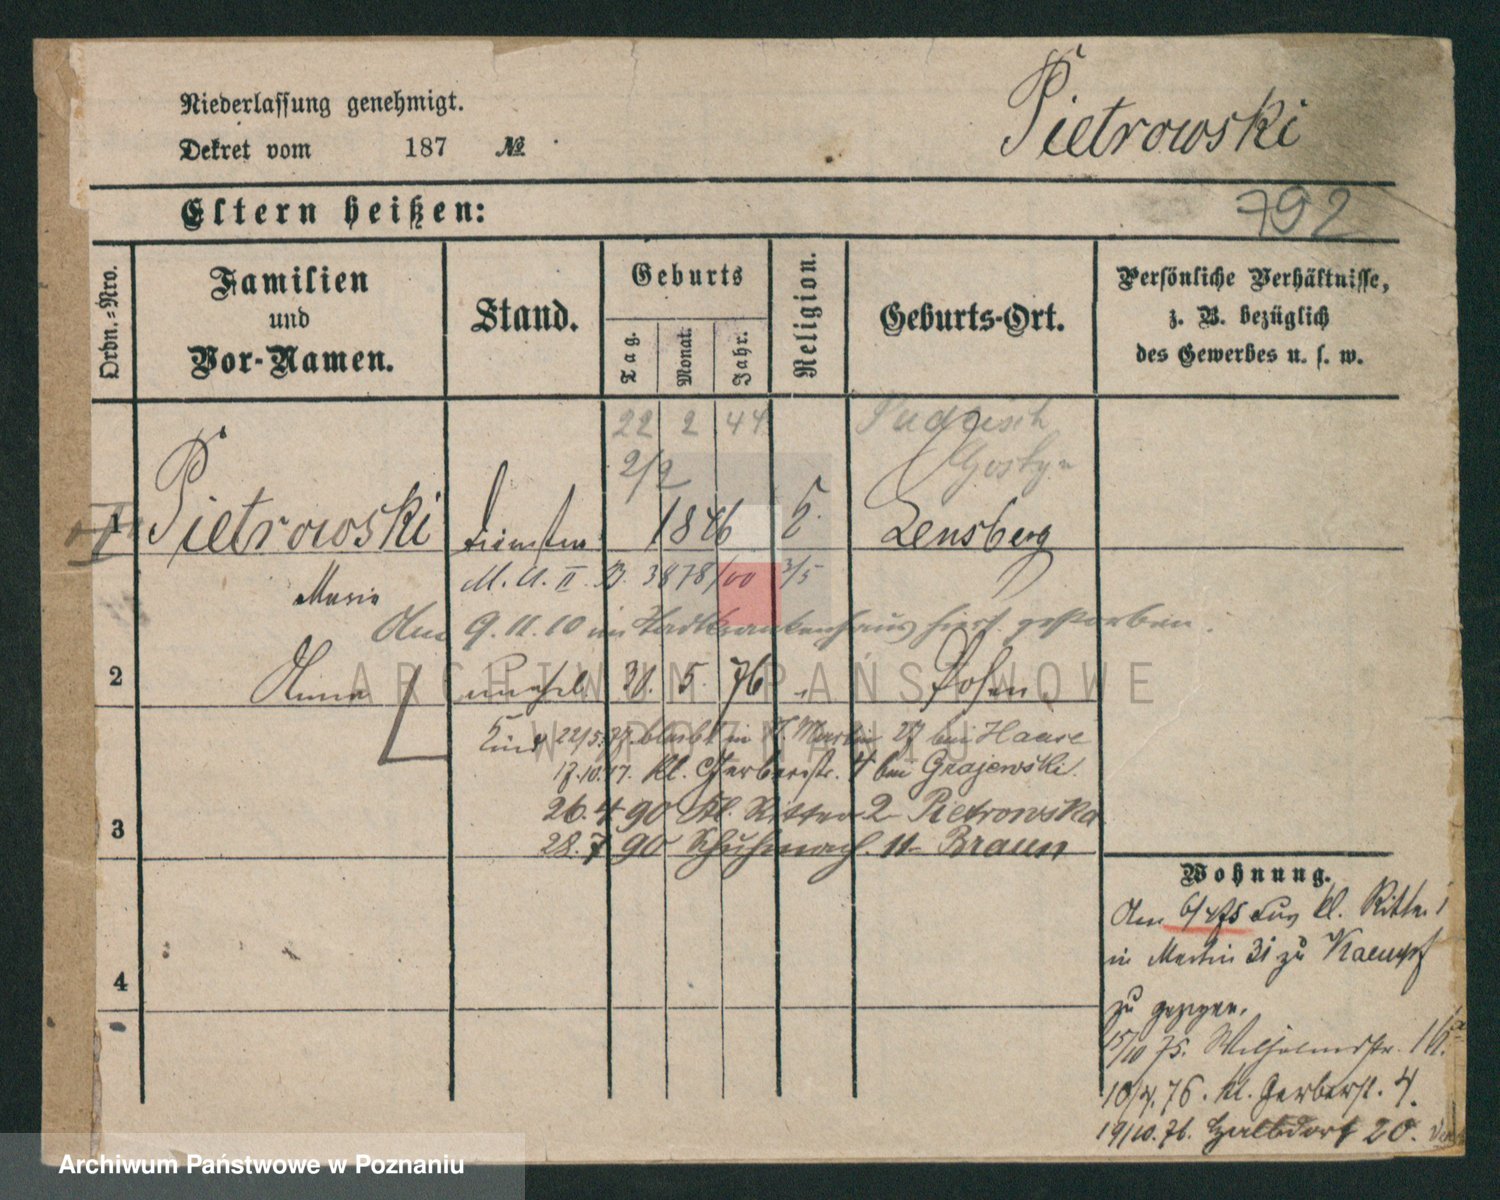 Niederlassung genehmigt.
Dekret vom 187 №
Pietrowski
Eltern heißen:
792
Ordn.=Nro.
Familien
und
Vor-Namen.
Stand.
Geburts
Tag.
Monat.
Jahr.
Religion.
Geburts-Ort.
Persönliche Verhältnisse,
z. B. bezüglich
des Gewerbes u. s. w.
22 2 44
2/2 Gostyn
1 Pietrowski 1846 Lensberg
Marie M. A. II B. 3878/00 3/5
Am 9.11.10 im Stadtkrankenhaus hiers. gestorben.
2 Anna unehel 30. 5. 76 Posen
22/5.77. bleibt in St. Martin 27 bei Haase
17.10.77. kl. Gerberstr. 4 bei Grajewski.
26.4 90 Kl. Ritter 2 Pietrowska
3
28.7 90 Schuhmach. 11 Braun
Wohnung.
Am 6/4 75 aus kl. Ritter 1
in Martin 31 zu Kaempf
zu gezogen.
4
15/10 75. Wilhelmstr. 16a
10/4.76. kl. Gerberst. 4.
19/10.76. Halbdorf 20.
ARCHIWUM PAŃSTWOWE
W POZNANIU
Archiwum Państwowe w Poznaniu